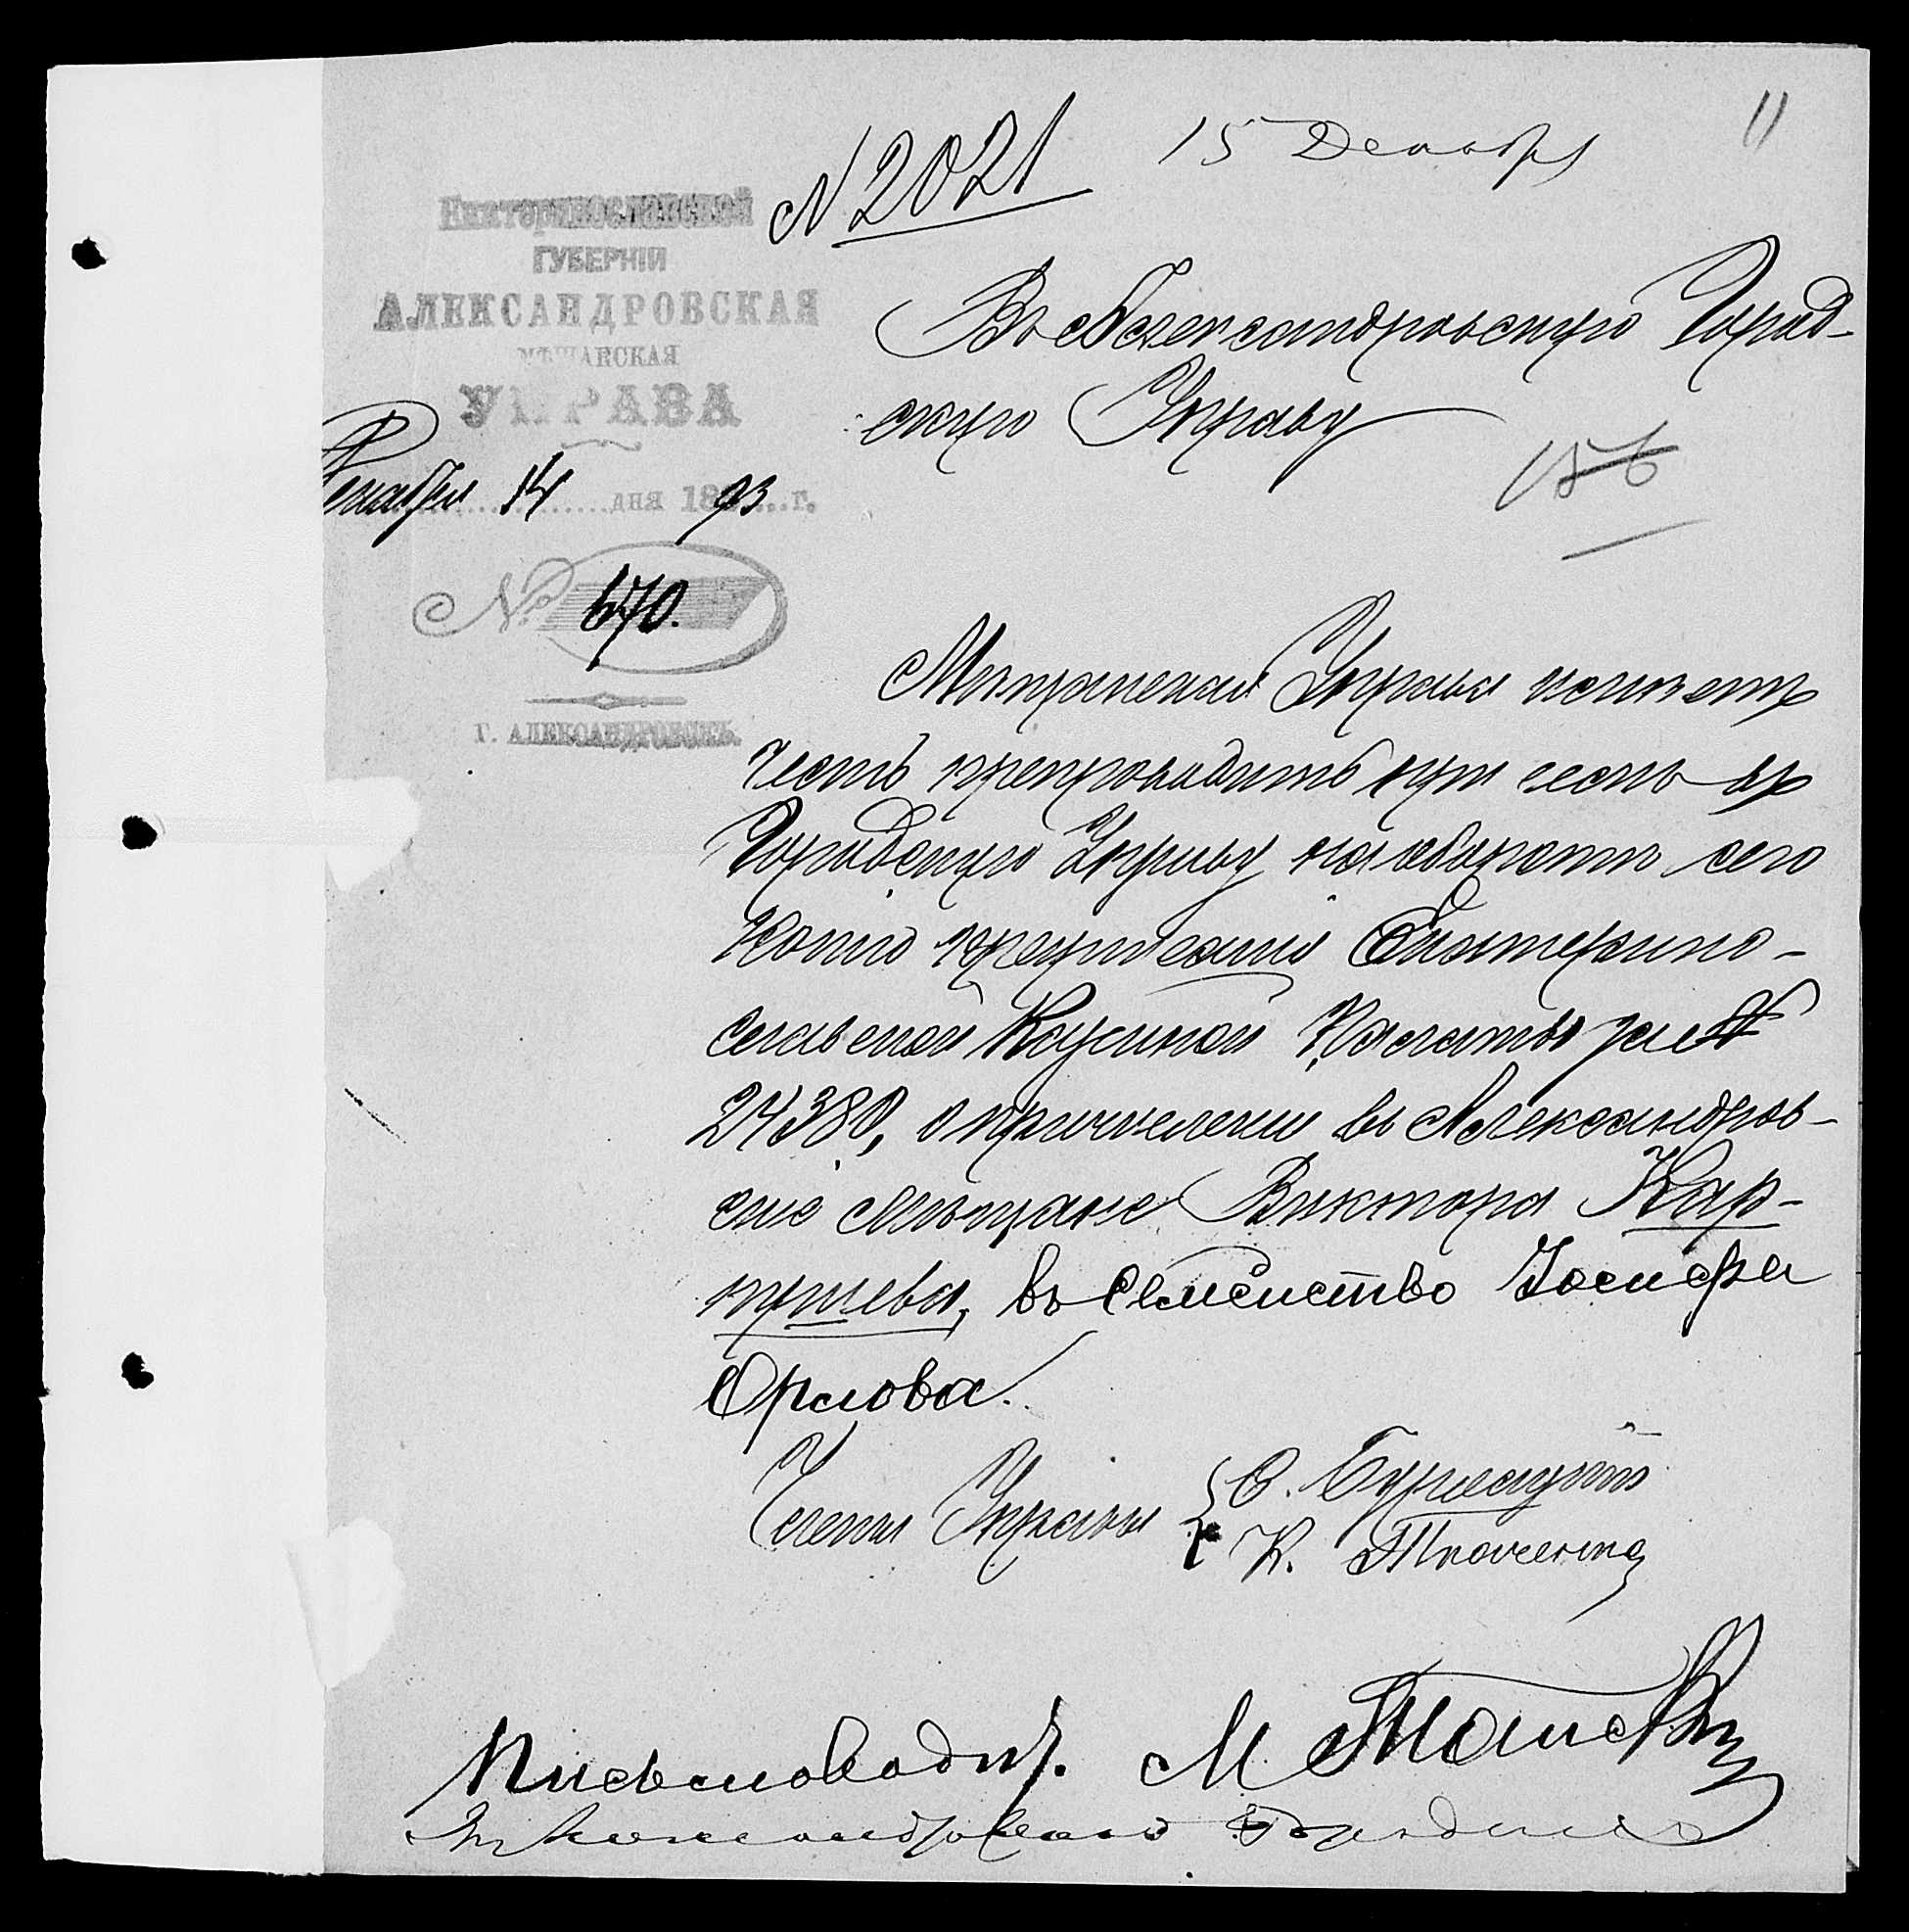 11
№ 2021 15 Декабр
Екатеринославской
ГУБЕРНІИ
АЛЕКСАНДРОВСКАЯ
МѢЩАНСКАЯ
УПРАВА
Декабря 14 дня 1893 г.
№ 670.
Г. АЛЕКСАНДРОВСКЪ.
Въ Александровскую Город-
скую Управу
Мѣщанская Управа имѣетъ
честь препроводить при семъ въ
Городскую Управу на оборотѣ сего
Копію предписанія Екатерино-
славской Казенной Палаты за №
24380, о причисленіи въ Александров-
скіе мѣщане Виктора Кар-
пушева, въ Семейство Іосифа
Орлова.
Члены Управы
К. Ткаченко
Письмоводит. М.